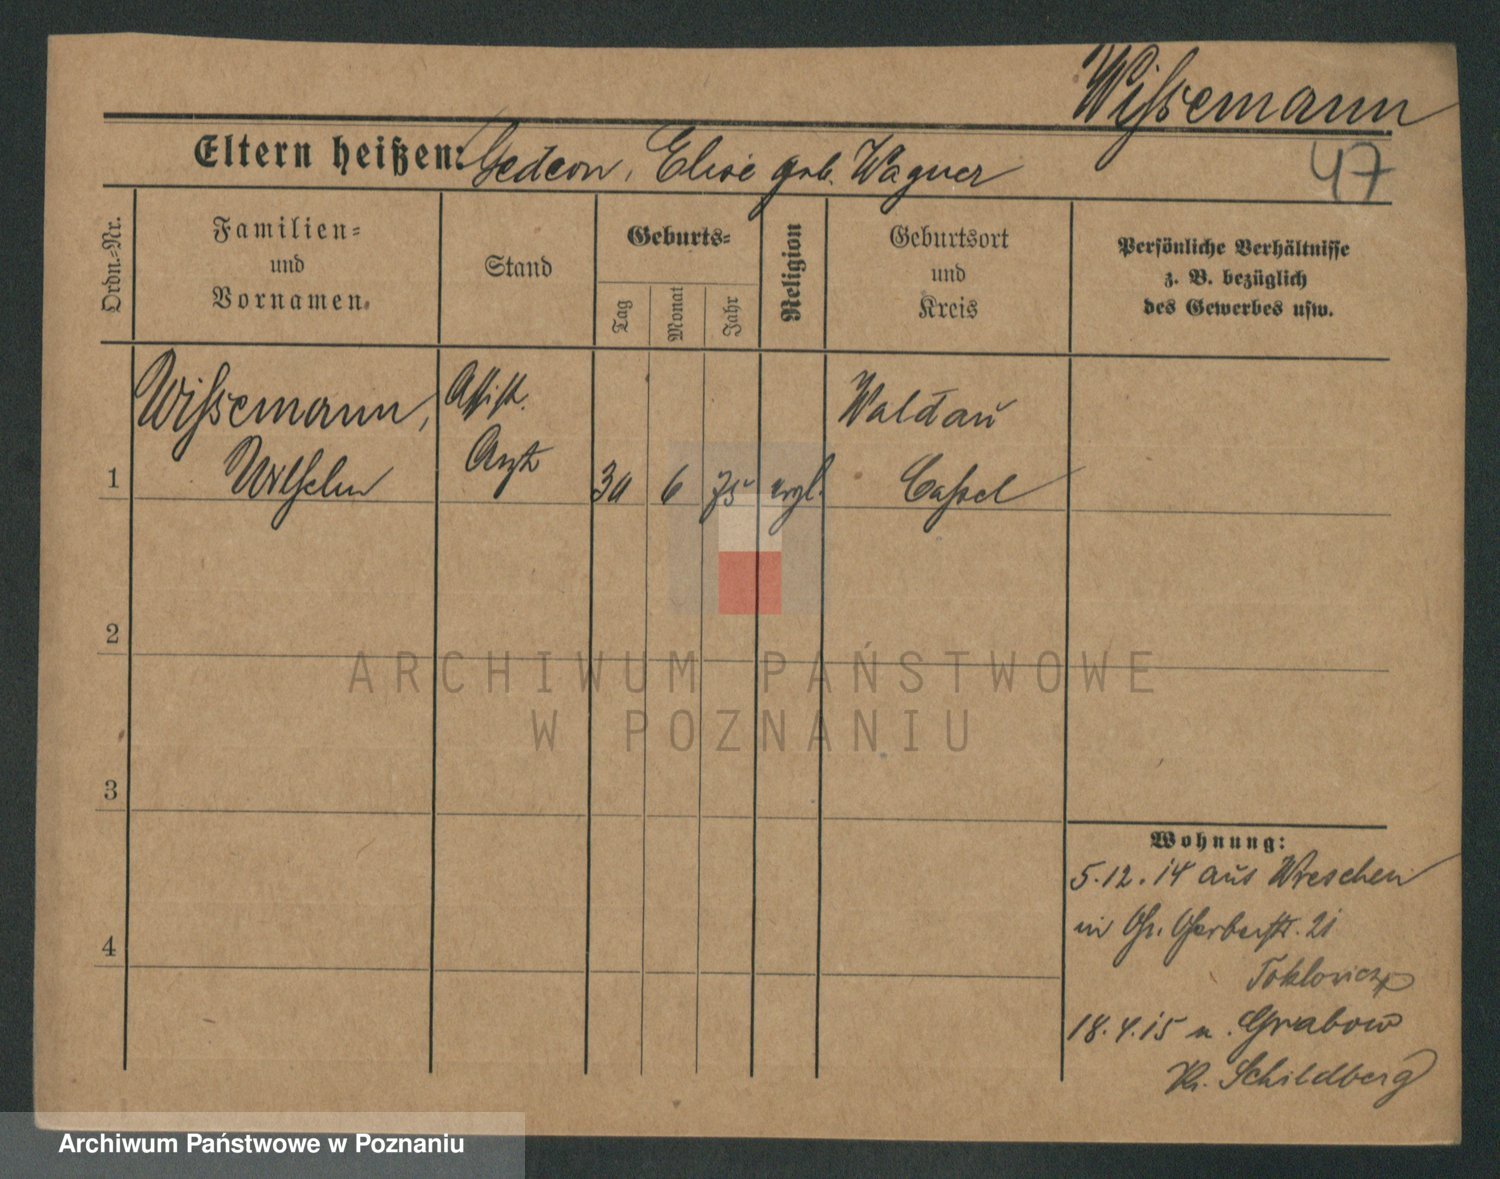 Wissemann
47
Eltern heißen: Gedeon, Elise geb. Wagner
Ordn.-Nr.
Familien-
und
Vornamen.
Stand
Geburts-
Tag
Monat
Jahr
Religion
Geburtsort
und
Kreis
Persönliche Verhältnisse
z. B. bezüglich
des Gewerbes usw.
Wissemann, Assist. Waldau
1 Wilhelm Arzt 30 6 75 evgl. Cassel
2
3
4
Wohnung:
5.12.14 aus Wreschen
in Gr. Gerberstr. 21
18.4.15 n. Grabow
Kr. Schildberg
ARCHIWUM PAŃSTWOWE
W POZNANIU
Archiwum Państwowe w Poznaniu